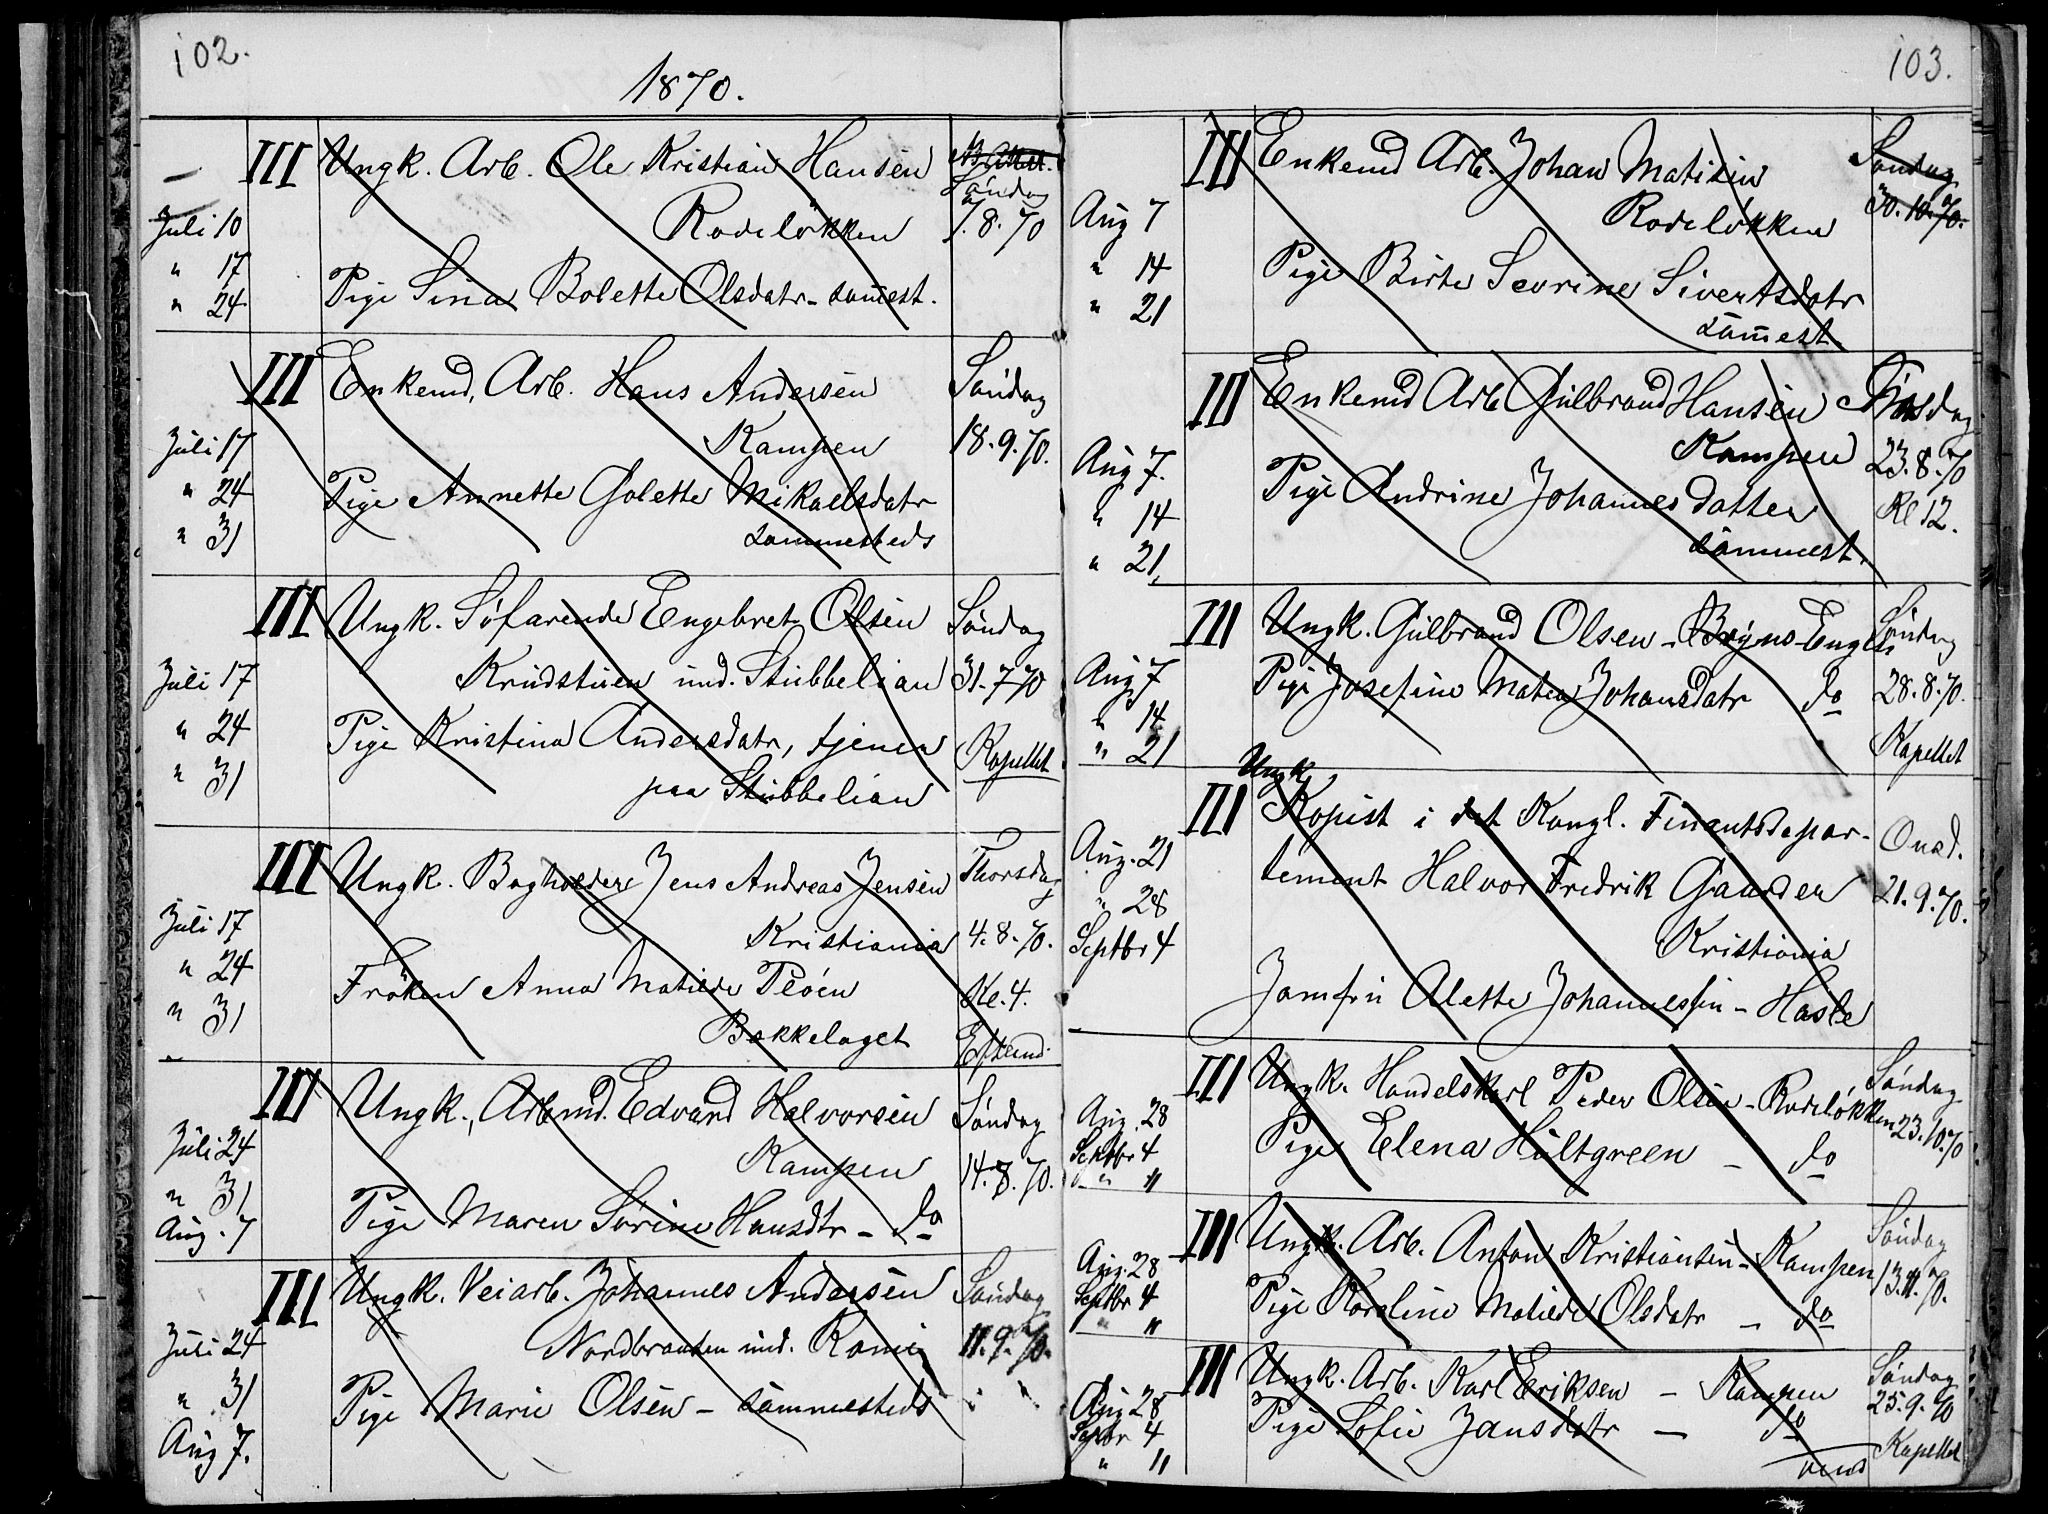 102.
1870.
III Ungk. Arb. Ole Kristian Hansen
Rodeløkken
Søndag
7.8.70
Juli 10
" 17
" 24
Pige Sina Bolette Olsdatr - samest.
III Enkemd, Arb. Hans Andersen
Kampen
Søndag
18.9.70.
Juli 17
" 24
" 31
Pige Annette Golette Mikaelsdatr
sammesteds
III Ungk. Søfarende Engebret Olsen
Krudstuen und. Stubbelian
Søndag
31.7.70
Kapellet
Juli 17
" 24
" 31
Pige Kristina Andersdatr, tjener
paa Stubbelian
III Ungk. Bogholder Jens Andreas Jensen
Kristiania
Thorsdag
4.8.70.
Kl. 4.
Eftermd.
Juli 17
" 24
" 31
Frøken Anna Matilde Pløen
Bækkelaget
III Ungk., Arbmd. Edvard Halvorsen
Kampen
Søndag
14.8.70.
Juli 24
" 31
Aug. 7
Pige Maren Sørine Hansdtr - do
III Ungk. Veiarb. Johannes Andersen
Nordbraaten und.
Søndag
11.9.70.
Juli 24
" 31
Aug 7.
Pige Marie Olsen - sammesteds
103.
III Enkemd Arb. Johan Matisen
Rodeløkken
Søndag
30.10.70.
Aug 7
" 14
" 21
Pige Birte Sevrine Sivertsdatr
samest.
III Enkemd Arb Gulbrand Hansen
Kampen
Tirsdag
23.8.70
Kl 12.
Aug 7.
" 14
" 21,
Pige Andrine Johannesdatter
sammest.
III Ungk. Gulbrand Olsen - Bryns-Engen
Søndag
28.8.70.
Kapellet
Aug 7
" 14
" 21
Pige Josefine Matea Johansdatr do
Ungk.
III Kopist i det Kongl. Finantsdepar-
tement Halvor Fredrik Gaarder
Kristiania
Onsd.
21.9.70.
Aug. 21
" 28
Septbr 4
Jomfru Alette Johannessen - Hasle
III Ungk. Handelskarl Peder Olsen - Rodeløkken
Søndag
23.10.70
Aug. 28
Septbr 4
" 11
Pige Elena Hultgreen - do
III Ungk. Arb. Anton Kristiansen - Kampen
Søndag
13.11.70.
Aug. 28
Septbr 4
" 11
Pige Karoline Matilde Olsdatr - do
III Ungk. Arb. Karl Eriksen - Kampen
Søndag
25.9.70
Kapellet
Aug 28
Septbr 4
" 11
Pige Sofie Jansdatr - do
vend